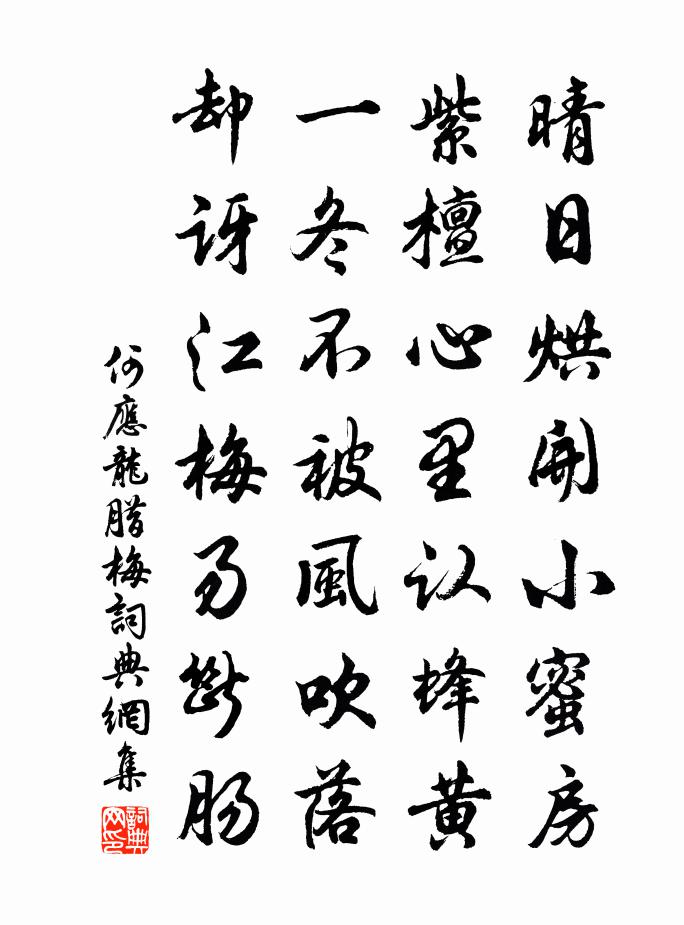 晴日烘開小蜜房
紫檀心里认蜂黄
一冬不被風吹落
却訝江梅易斷腸
何應龍腊梅詞典網集
詞典网印